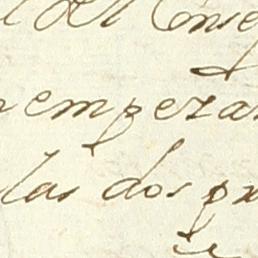 del Conse
empeza
las dos p